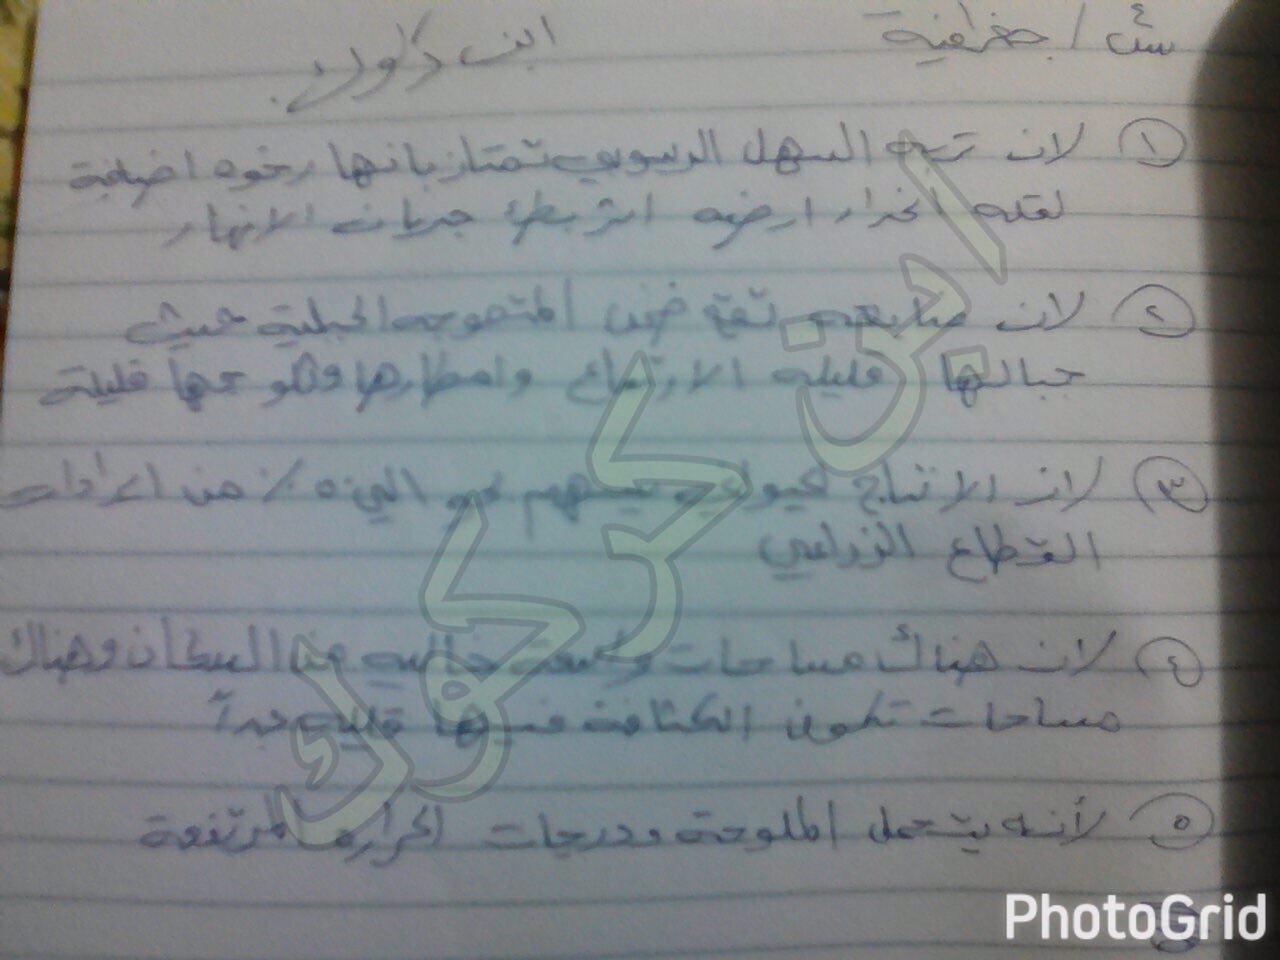 س٤ / جغرافية
ابن كركوك
① لان تربة السهل الرسوبي تمتاز بانها رخوه اضافية
لقلة انحدار ارضه اثر بطئ جريان الانهار
② لان منابعه تقع ضمن المتموجه الجبلية حيث
جبالها قليله الارتفاع وامطارها وثلوجها قليلة
③ لان الانتاج الحيواني يسهم من ايرادات
القطاع الزراعي
④ لان هناك مساحات واسعة خاليه من السكان وهناك
مساحات تكون الكثافة فيها قليله جداً
⑤ لأنه يتحمل الملوحة ودرجات الحراره المرتفعة
ابن كركوك
PhotoGrid